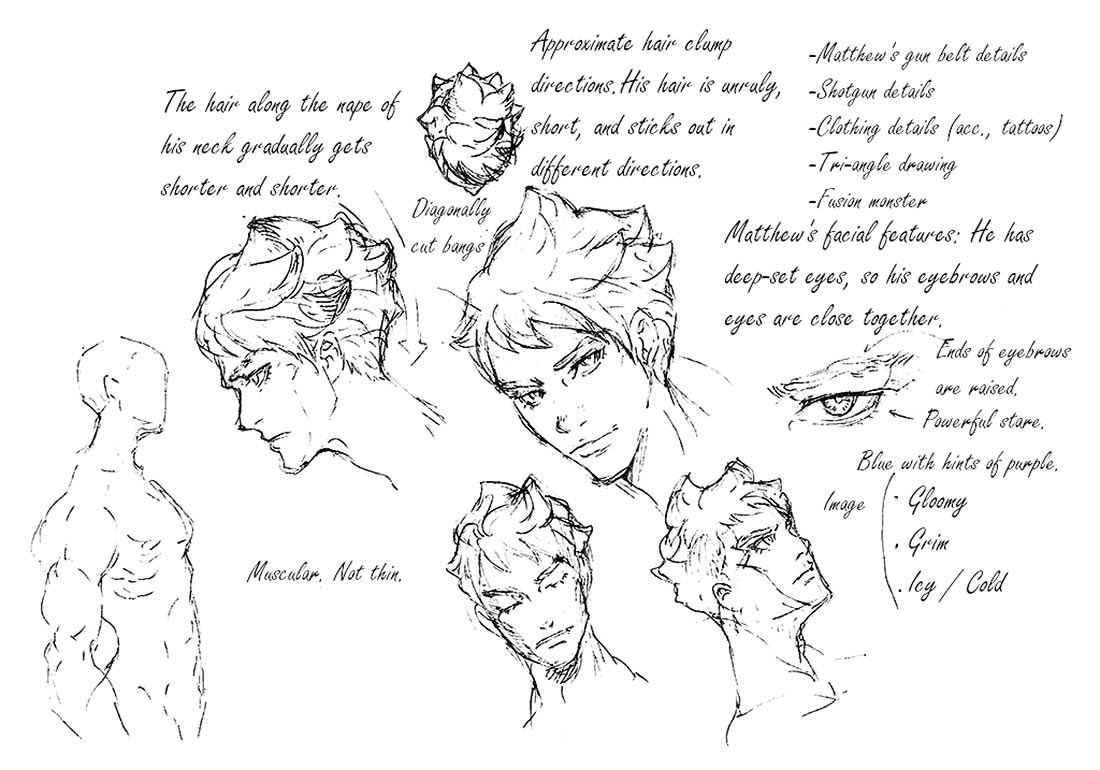 The hair along the nape of
his neck gradually gets
shorter and shorter.
Approximate hair clump
directions. His hair is unruly,
short, and sticks out in
different directions.
-Matthew's gun belt details
-Shotgun details
-Clothing details (acc., tattoos)
-Tri-angle drawing
-Fusion monster
Diagonally
cut bangs
Matthew's facial features: He has
deep-set eyes, so his eyebrows and
eyes are close together.
Ends of eyebrows
are raised.
Powerful stare.
Blue with hints of purple.
Image
· Gloomy
· Grim
· Icy / Cold
Muscular. Not thin.